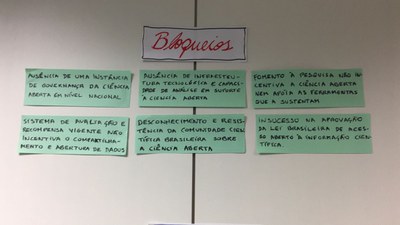 Bloqueios
AUSÊNCIA DE UMA INSTÂNCIA
DE GOVERNANÇA DA CIÊNCIA
ABERTA EM NÍVEL NACIONAL
AUSÊNCIA DE INFRAESTRU
TURA TECNOLÓGICA E CAPACI
DADE DE ANÁLISE EM SUPORTE
À CIÊNCIA ABERTA
FOMENTO À PESQUISA NÃO IN
CENTIVA A CIÊNCIA ABERTA
NEM APÓIA AS FERRAMENTAS
QUE A SUSTENTAM
SISTEMA DE AVALIAÇÃO E
RECOMPENSA VIGENTE NÃO
INCENTIVA O COMPARTILHA-
MENTO E ABERTURA DE DADOS
DESCONHECIMENTO E RESIS
TÊNCIA DA COMUNIDADE CIEN
TÍFICA BRASILEIRA SOBRE
A CIÊNCIA ABERTA
INSUCESSO NA APROVAÇÃO
DA LEI BRASILEIRA DE ACES
SO ABERTO À INFORMAÇÃO CIEN-
TÍFICA.